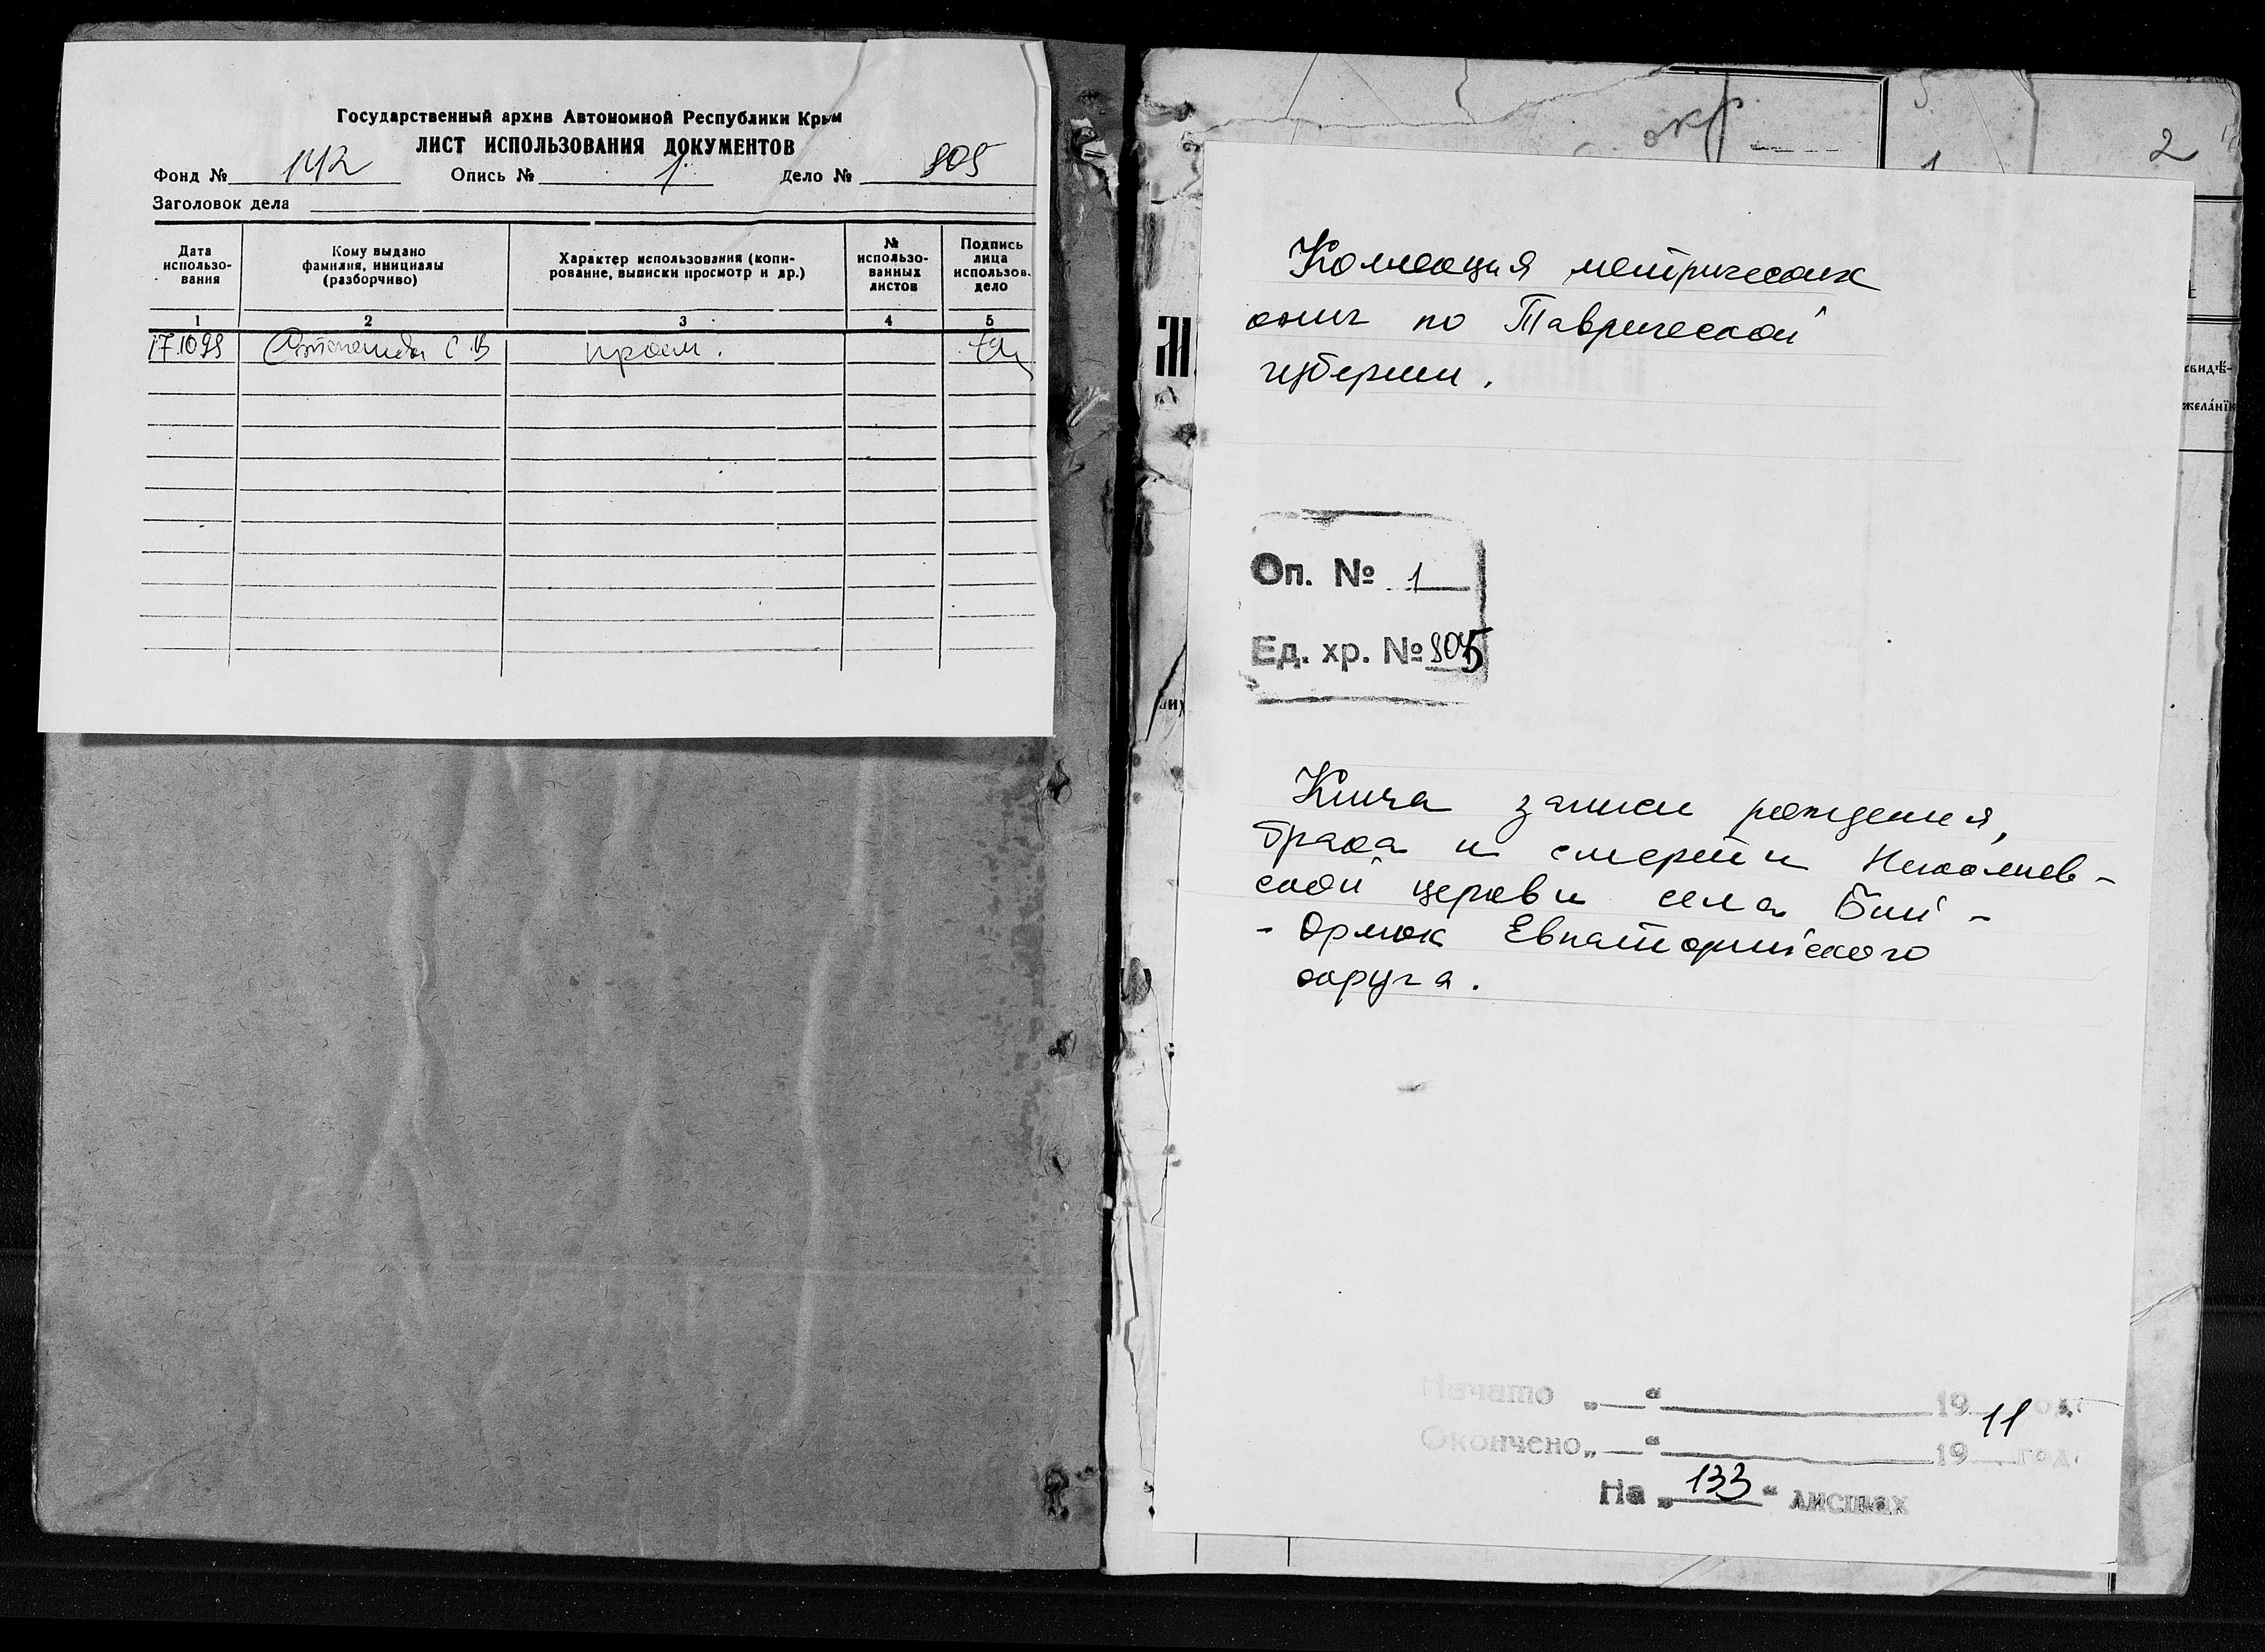 Государственный архив Автономной Республики Крым
ЛИСТ ИСПОЛЬЗОВАНИЯ ДОКУМЕНТОВ
Фонд № 142 Опись № 1 Дело № 805
Заголовок дела
Дата использо-вания
Кому выдано фамилия, инициалы (разборчиво)
Характер использования (копи-рование, выписки просмотр и др.)
№ использо-ванных листов
Подпись лица использов. дело
1 2 3 4 5
С.В. просм.
окр
1
2
свидѣ-
желанію
Коллекция метрических
книг по Таврической
губернии.
Оп. № 1
Ед. хр. № 805
Книга записи рождения,
брака и смерти Николаев-
ской церкви села Бий-
-Орлюк Евпаторийского
округа.
Начато „ “ 19 11 год.
Окончено „ “ 19 год.
На „133“ листах